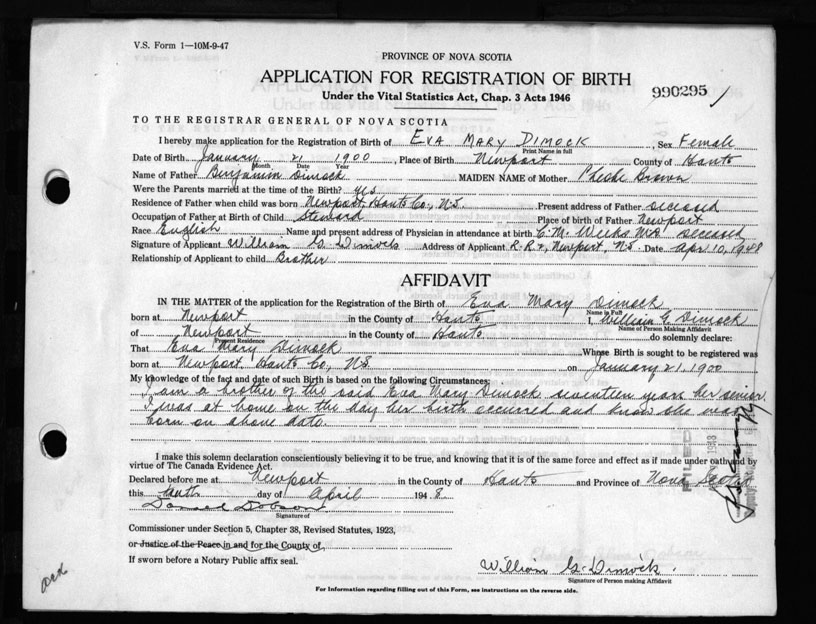 V.S. Form 1—10M-9-47
PROVINCE OF NOVA SCOTIA
APPLICATION FOR REGISTRATION OF BIRTH
990295
Under the Vital Statistics Act, Chap. 3 Acts 1946
TO THE REGISTRAR GENERAL OF NOVA SCOTIA
I hereby make application for the Registration of Birth of EVA MARY DIMOCK, Sex Female
Print Name in full
Date of Birth January 21 1900, Place of Birth Newport County of Hants
Month Date Year
Name of Father Benjamin Dimock MAIDEN NAME of Mother Phebe Brown
Were the Parents married at the time of the Birth? yes
Residence of Father when child was born Newport, Hants Co., N.S. Present address of Father deceased
Occupation of Father at Birth of Child Steward Place of birth of Father Newport
Race English Name and present address of Physician in attendance at birth C.M. Weeks M.D. deceased
Signature of Applicant William G. Dimock Address of Applicant R.R. Newport, N.S. Date Apr 10, 1948
Relationship of Applicant to child Brother
AFFIDAVIT
IN THE MATTER of the application for the Registration of the Birth of Eva Mary Dimock
Name in Full
born at Newport in the County of Hants I, William G. Dimock
Name of Person Making Affidavit
of Newport in the County of Hants do solemnly declare:
Present Residence
That Eva Mary Dimock Whose Birth is sought to be registered was
born at Newport, Hants Co., N.S. on January 21, 1900
My knowledge of the fact and date of such Birth is based on the following Circumstances:
I am a brother of the said Eva Mary Dimock seventeen years her senior.
I was at home on the day her birth occurred and know she was
born on above date.
FILED
I make this solemn declaration conscientiously believing it to be true, and knowing that it is of the same force and effect as if made under oath and by
virtue of The Canada Evidence Act.
Declared before me at Newport in the County of Hants and Province of Nova Scotia
this tenth day of April 1948
Donald Dobson
Signature of
Commissioner under Section 5, Chapter 38, Revised Statutes, 1923,
or Justice of the Peace in and for the County of
If sworn before a Notary Public affix seal.
William G. Dimock.
Signature of Person making Affidavit
For Information regarding filling out of this Form, see instructions on the reverse side.